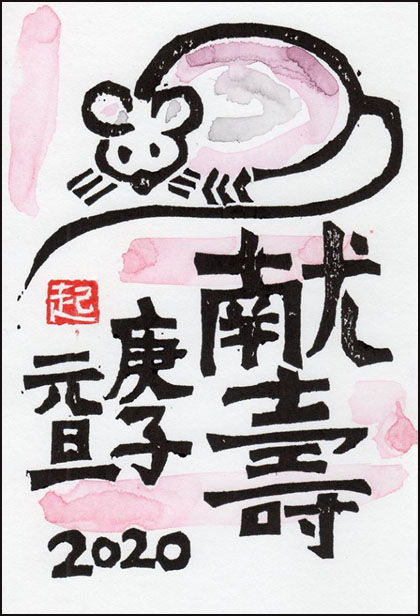 献壽
庚子
元旦
起
2020